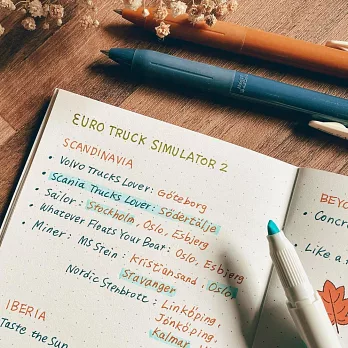 EURO TRUCK SIMULATOR 2
SCANDINAVIA
• Volvo Trucks Lover: Göteborg
• Scania Trucks Lover: Södertälje
• Sailor: Stockholm, Oslo, Esbjerg
• Whatever Floats Your Boat: Oslo, Esbjerg
• Miner: MS Stein: Kristiansand, Oslo,
Stavanger
Nordic Stenbrott: Linköping,
Jönköping,
Kalmar
IBERIA
Taste the Sun
BEYO
• Concr
• Like a